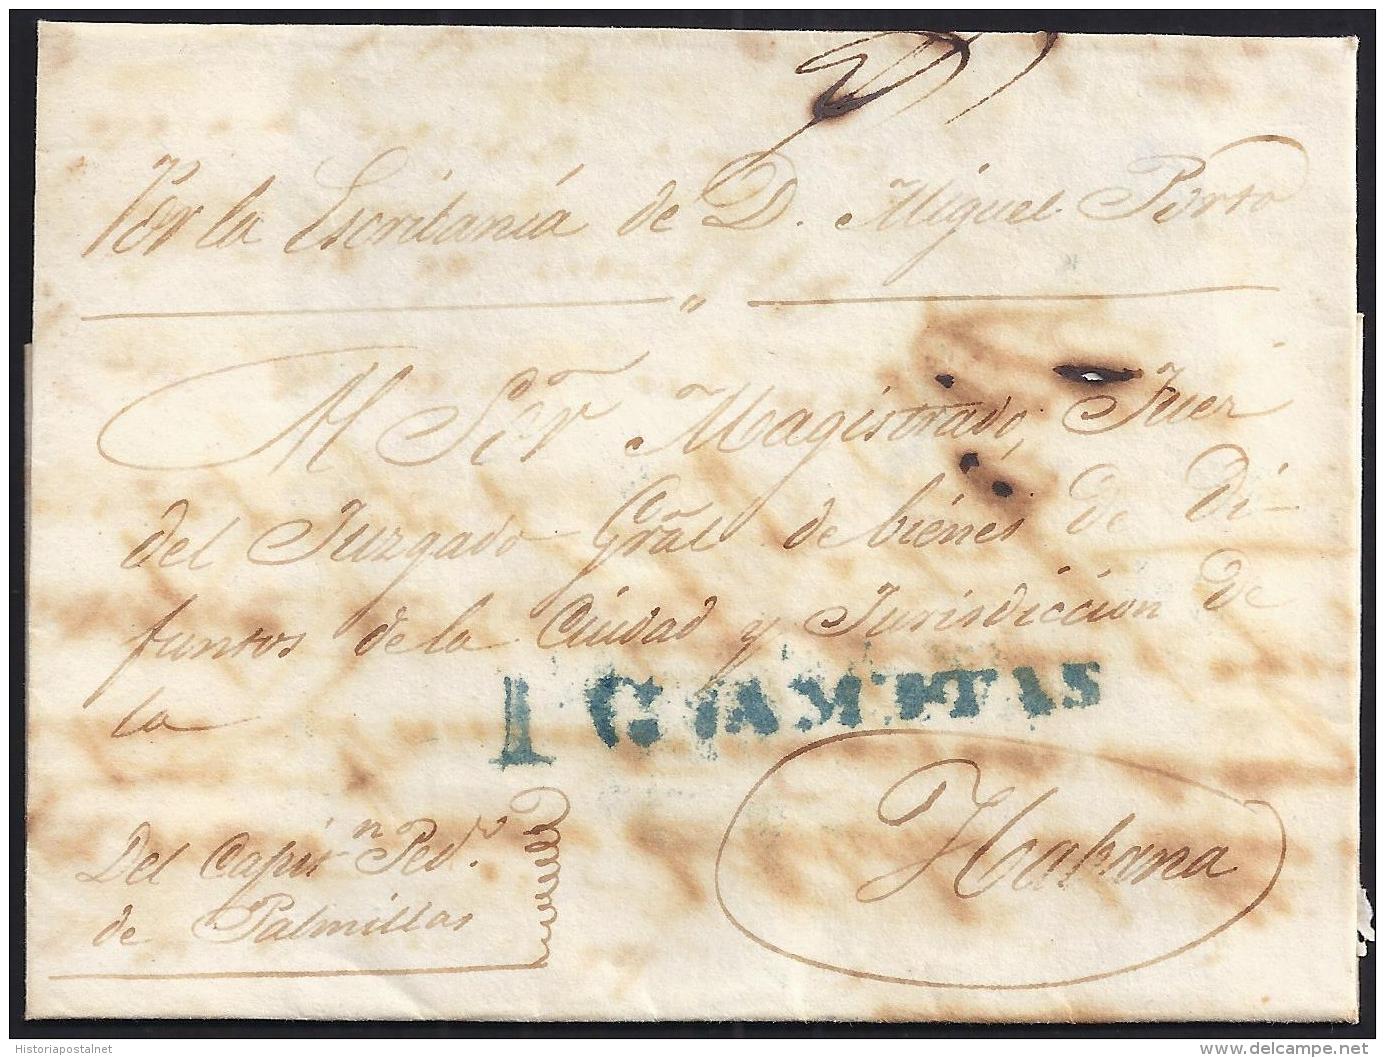 Por la Escritanía de D. Miguel Porto
Al Sor Magistrado, Juez
del Juzgado Gral de bienes de Di-
funtos de la Ciudad y Jurisdiccion de
la
1 GUAMUTAS
Habana
Del Capitn Ped.o
de Palmillas
Historiapostalnet
www.delcampe.net